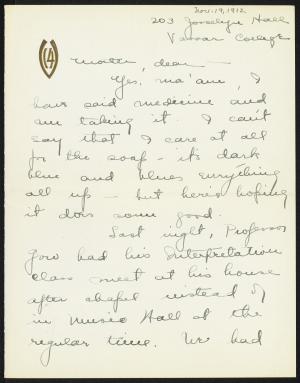 Nov. 19, 1912
203 Josselyn Hall
Vassar College
V14
Mother, dear —
Yes, ma'am, I
have said medicine and
am taking it. I can't
say that I care at all
for the soap - it's dark
blue and blues everything
all up - but here's hoping
it does some good.
Last night, Professor
Gow had his Interpretation
class meet at his house
after chapel instead of
in Music Hall at the
regular time. We had